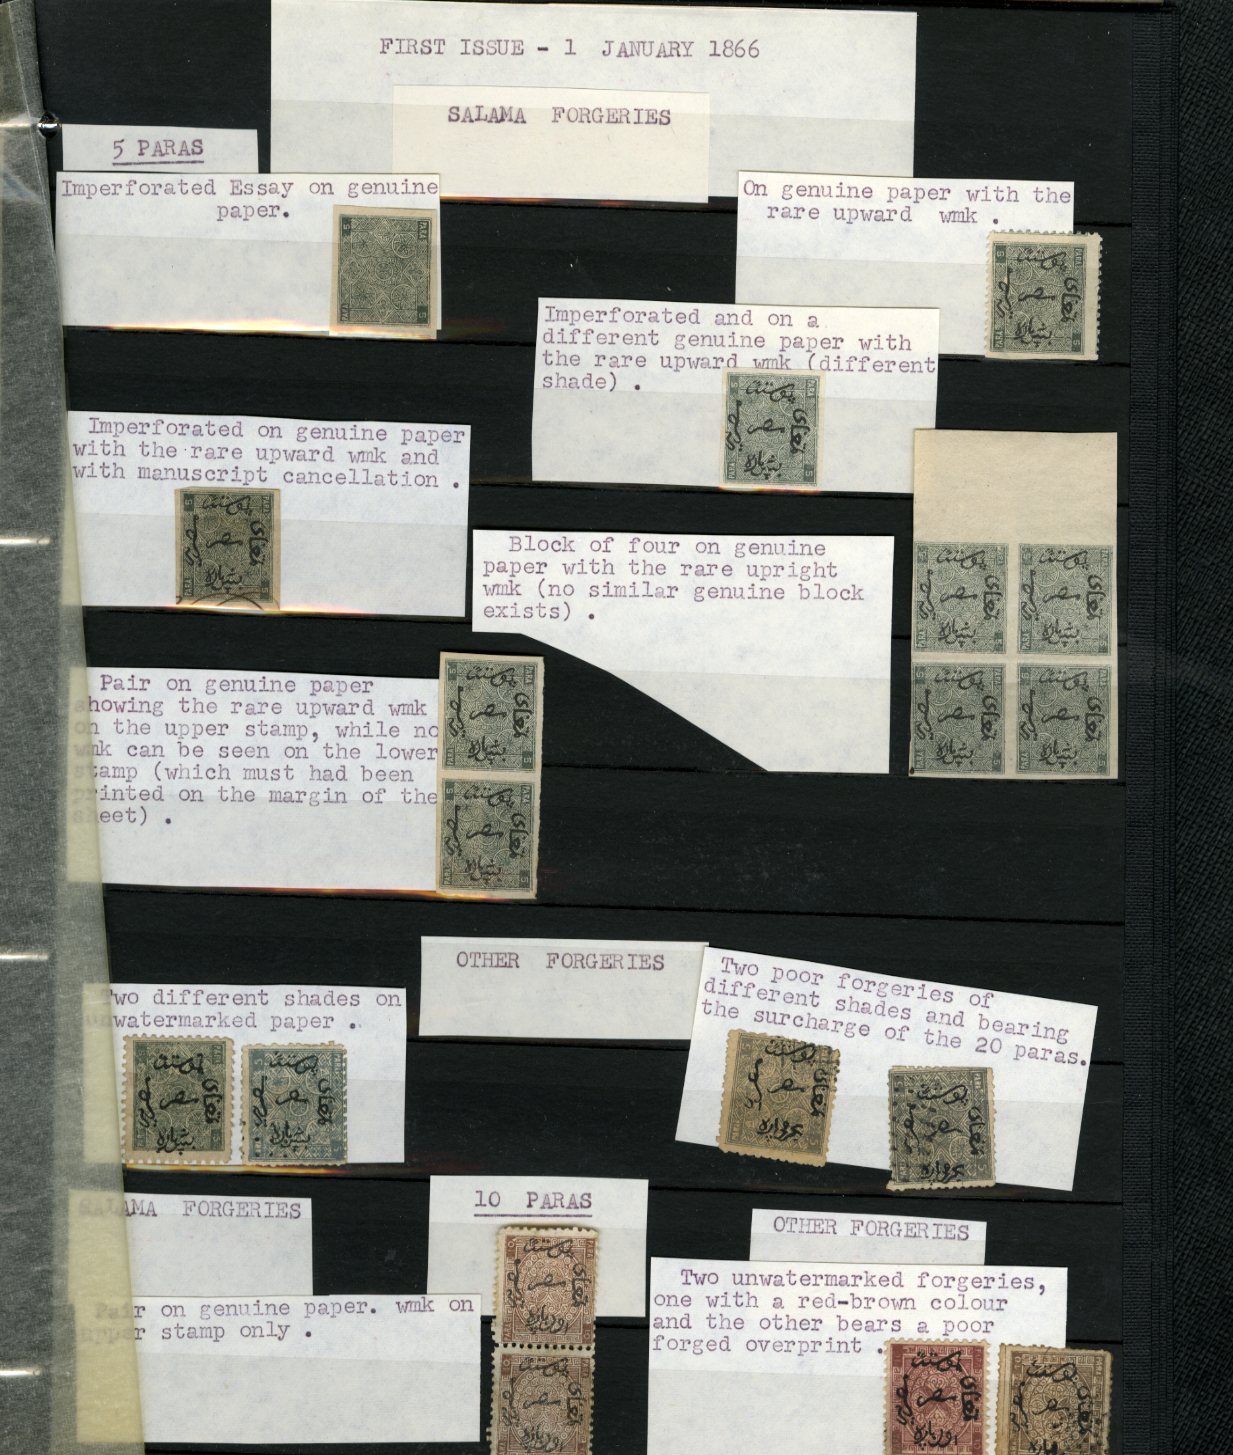 FIRST ISSUE - 1 JANUARY 1866
SALAMA FORGERIES
5 PARAS
Imperforated Essay on genuine
paper.
On genuine paper with the
rare upward wmk .
Imperforated and on a
different genuine paper with
the rare upward wmk (different
shade) .
Imperforated on genuine paper
with the rare upward wmk and
with manuscript cancellation .
Block of four on genuine
paper with the rare upright
wmk (no similar genuine block
exists) .
Pair on genuine paper
showing the rare upward wmk
on the upper stamp, while no
wmk can be seen on the lower
stamp (which must had been
printed on the margin of the
sheet) .
OTHER FORGERIES
Two different shades on
unwatermarked paper .
Two poor forgeries of
different shades and bearing
the surcharge of the 20 paras.
SALAMA FORGERIES
10 PARAS
OTHER FORGERIES
Pair on genuine paper. wmk on
upper stamp only .
Two unwatermarked forgeries,
one with a red-brown colour
and the other bears a poor
forged overprint .